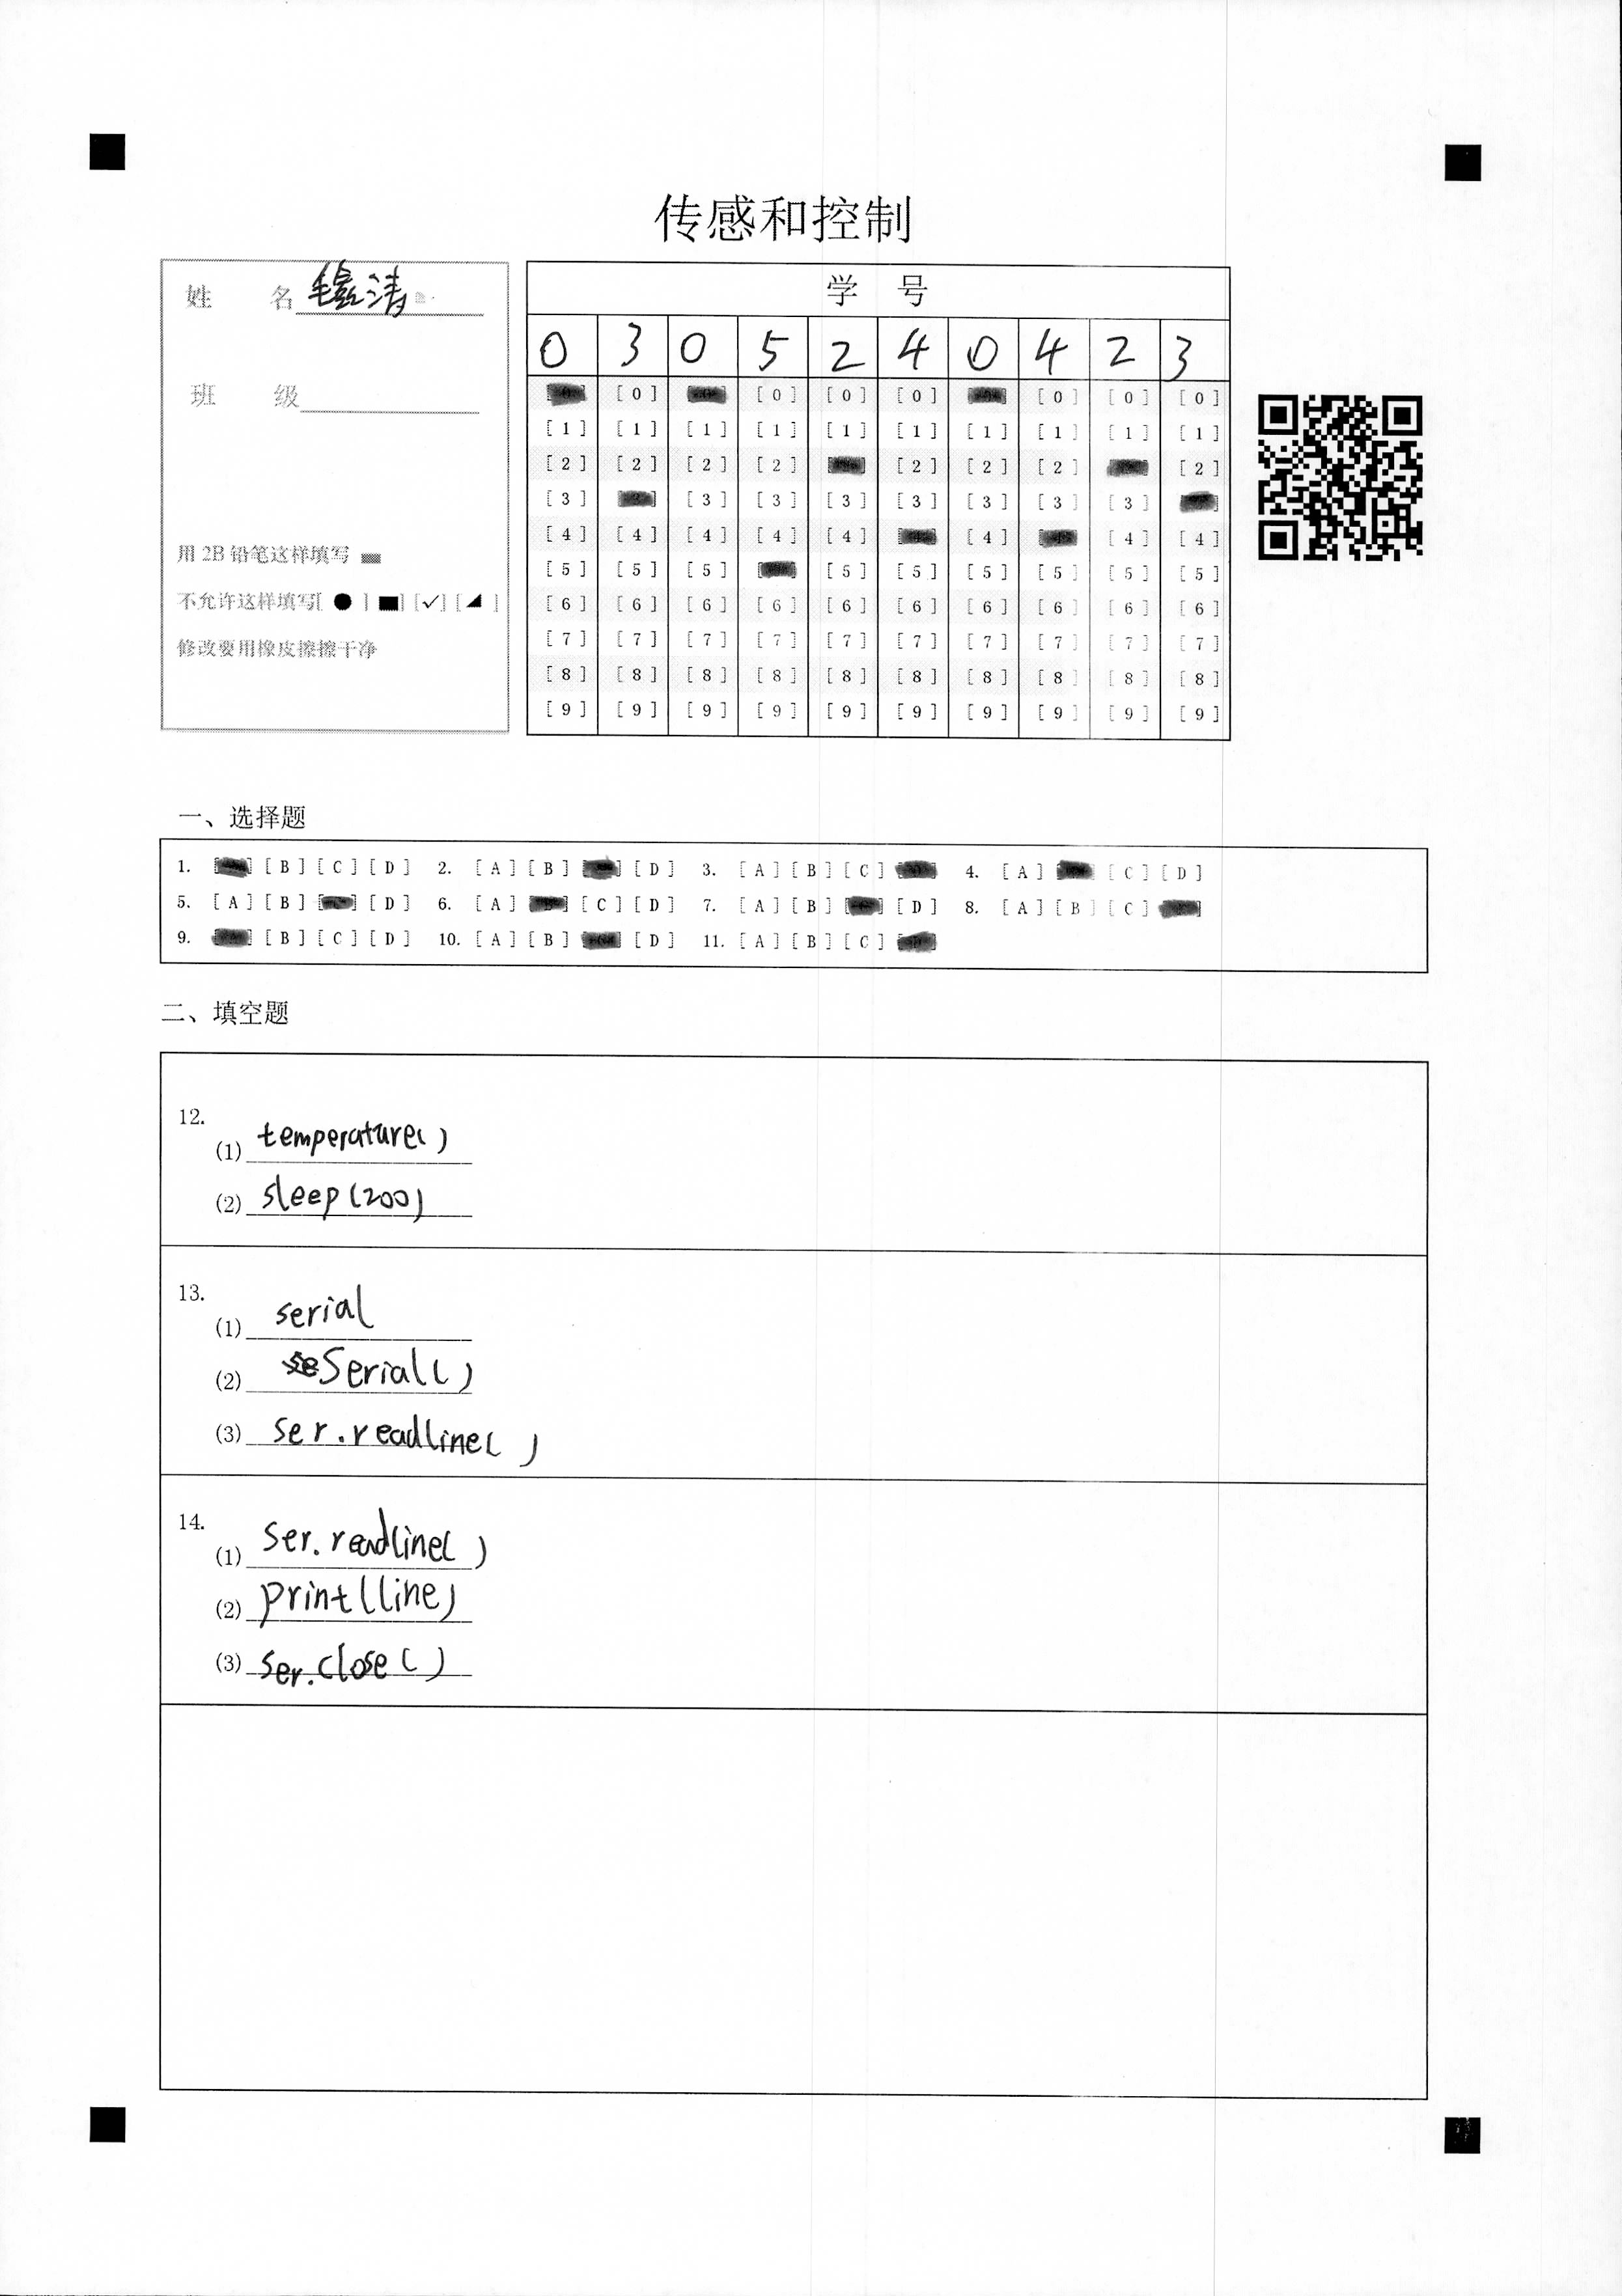 传感和控制
姓 名
班 级
用 2B 铅笔这样填写
不允许这样填写[ ● ] [■] [✓] [◢ ]
修改要用橡皮擦擦干净
学 号
0 3 0 5 2 4 0 4 2 3
[0] [0] [0] [0] [0] [0] [0]
[1] [1] [1] [1] [1] [1] [1] [1] [1] [1]
[2] [2] [2] [2] [2] [2] [2] [2]
[3] [3] [3] [3] [3] [3] [3] [3]
[4] [4] [4] [4] [4] [4] [4] [4]
[5] [5] [5] [5] [5] [5] [5] [5] [5]
[6] [6] [6] [6] [6] [6] [6] [6] [6] [6]
[7] [7] [7] [7] [7] [7] [7] [7] [7] [7]
[8] [8] [8] [8] [8] [8] [8] [8] [8] [8]
[9] [9] [9] [9] [9] [9] [9] [9] [9] [9]
一、选择题
1. [B] [C] [D] 2. [A] [B] [D] 3. [A] [B] [C] 4. [A] [C] [D]
5. [A] [B] [D] 6. [A] [C] [D] 7. [A] [B] [D] 8. [A] [B] [C]
9. [B] [C] [D] 10. [A] [B] [D] 11. [A] [B] [C]
二、填空题
12.
(1) temperature()
(2) sleep(200)
13.
(1) serial
(2) Serial()
(3) ser.readline()
14.
(1) ser.readline()
(2) print(line)
(3) ser.close()